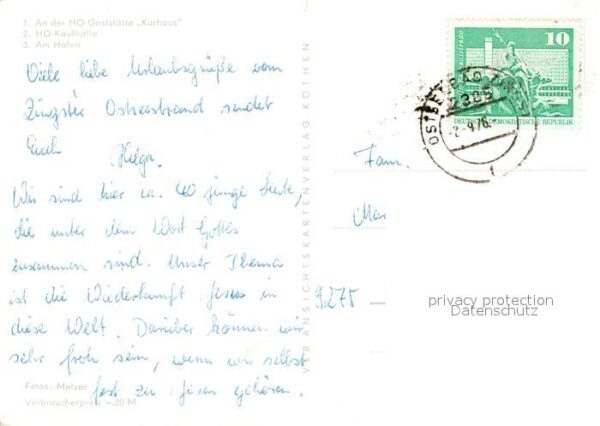 1. An der HO-Gaststätte „Kurhaus"
2. HO-Kaufhalle
3. Am Hafen
Viele liebe Urlaubsgrüße vom
Zingster Ostseestrand sendet
Euch Helga.
Wir sind hier ca. 40 junge Leute,
die unter dem Wort Gottes
zusammen sind. Unser Thema
ist die Wiederkunft Jesus in
diese Welt. Darüber können wir
sehr froh sein, wenn wir selbst
fest zu Jesus gehören.
Fotos: Melzer
Verbraucherpreis –,20 M
VEB ANSICHTSKARTENVERLAG KÖTHEN
10
DEUTSCHE DEMOKRATISCHE REPUBLIK
OSTSEEBAD
2385
-2-9.76
Fam.
Mar
9275
privacy protection
Datenschutz